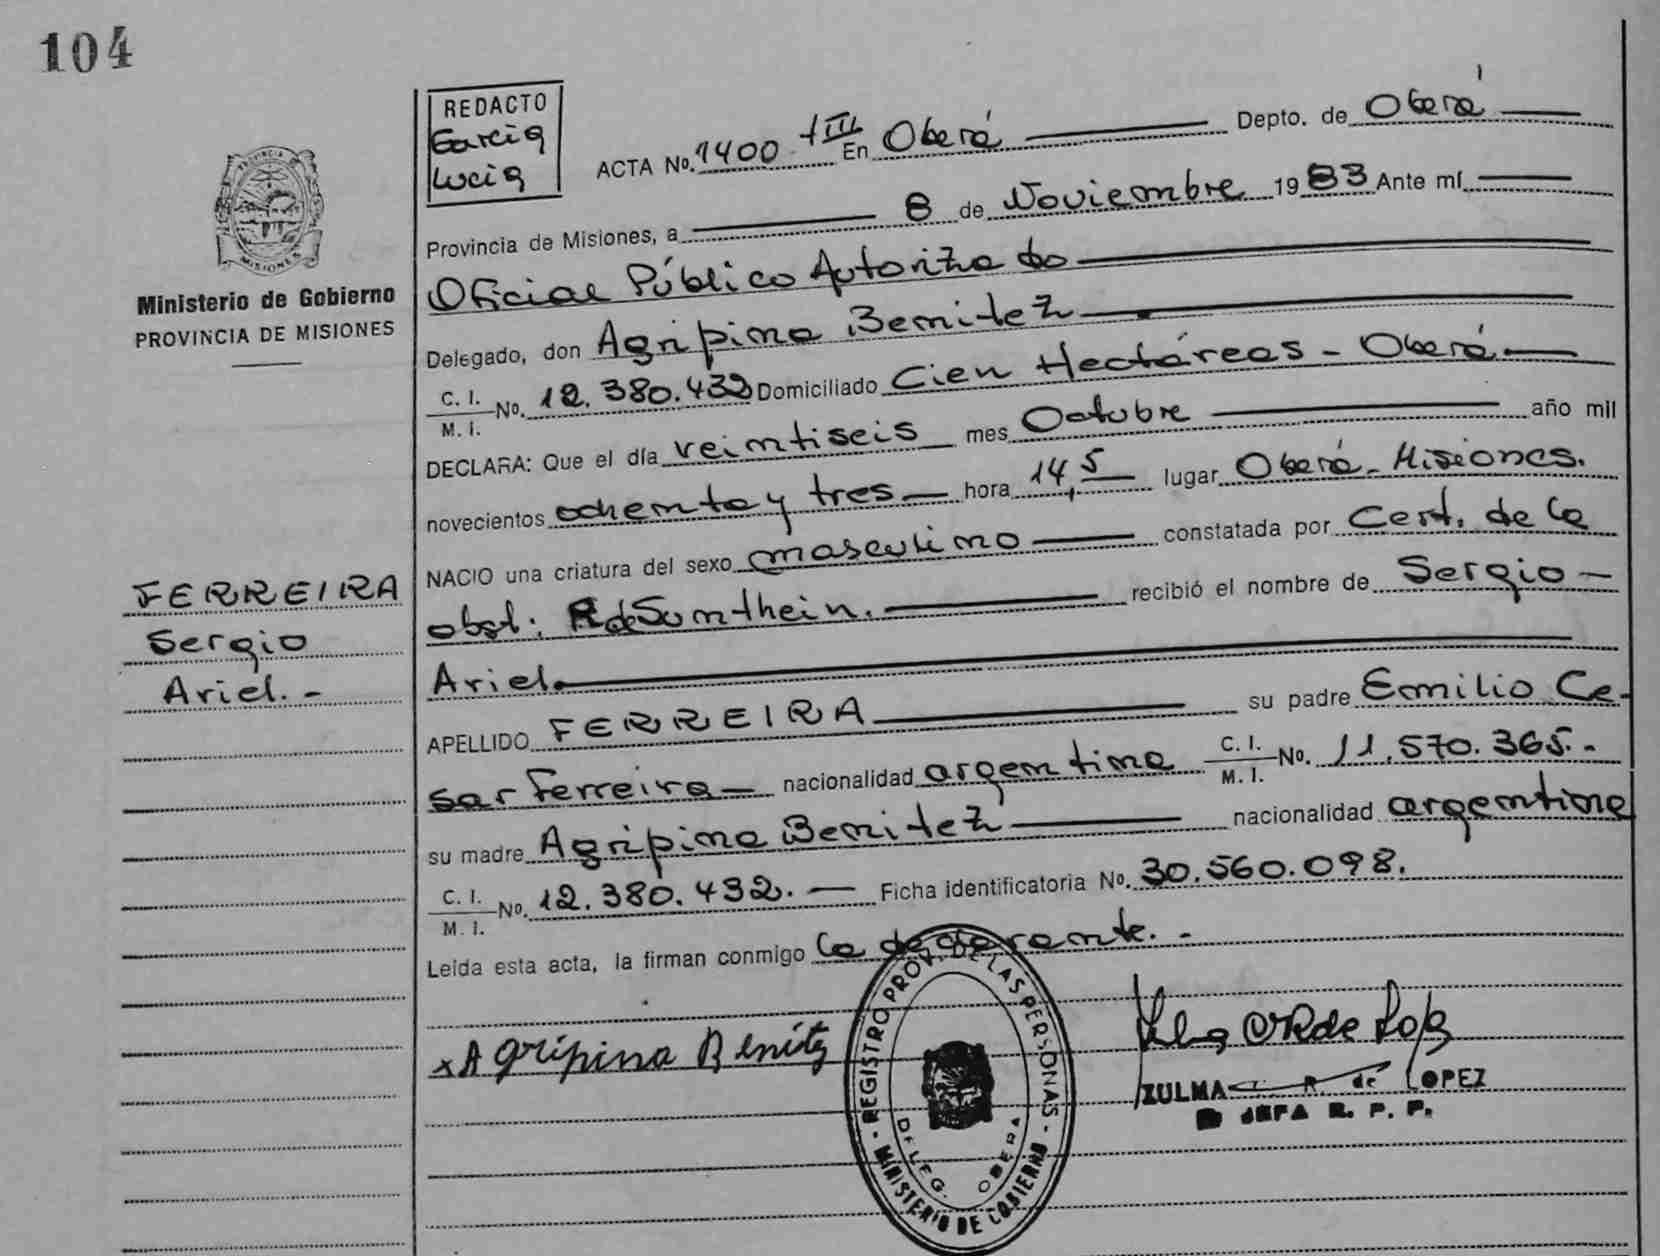 104
REDACTO
Garcia
Lucia
ACTA No. 1400 tIII En Oberá Depto. de Oberá
Provincia de Misiones, a 8 de Noviembre 1983 Ante mí
Oficial Público Autorizado
Delegado, don Agripina Benitez
C. I. / M. I. No. 12.380.432 Domiciliado Cien Hectáreas - Oberá
DECLARA: Que el día veintiseis mes Octubre año mil
novecientos ochenta y tres hora 14,5 lugar Oberá - Misiones.
NACIO una criatura del sexo masculino constatada por Cert. de la
obst: R de Sonthein. recibió el nombre de Sergio
Ariel
APELLIDO FERREIRA su padre Emilio Ce-
sar Ferreira nacionalidad argentina C. I. / M. I. No. 11.570.365.-
su madre Agripina Benitez nacionalidad argentina
C. I. / M. I. No. 12.380.432. Ficha identificatoria No. 30.560.098.
Leída esta acta, la firman conmigo la declarante. -
x Agripina Benitz
ZULMA R de LOPEZ
JEFA R. P. P.
REGISTRO PROV. DE LAS PERSONAS - MINISTERIO DE GOBIERNO -
DELEG. OBERA
PROVINCIA DE
MISIONES
Ministerio de Gobierno
PROVINCIA DE MISIONES
FERREIRA
Sergio
Ariel. -